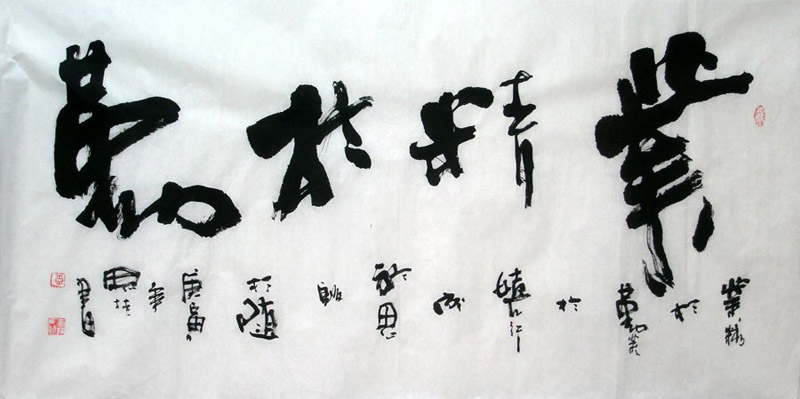 業精於勤
業精於勤荒於嬉行成於思毀於隨庚寅年